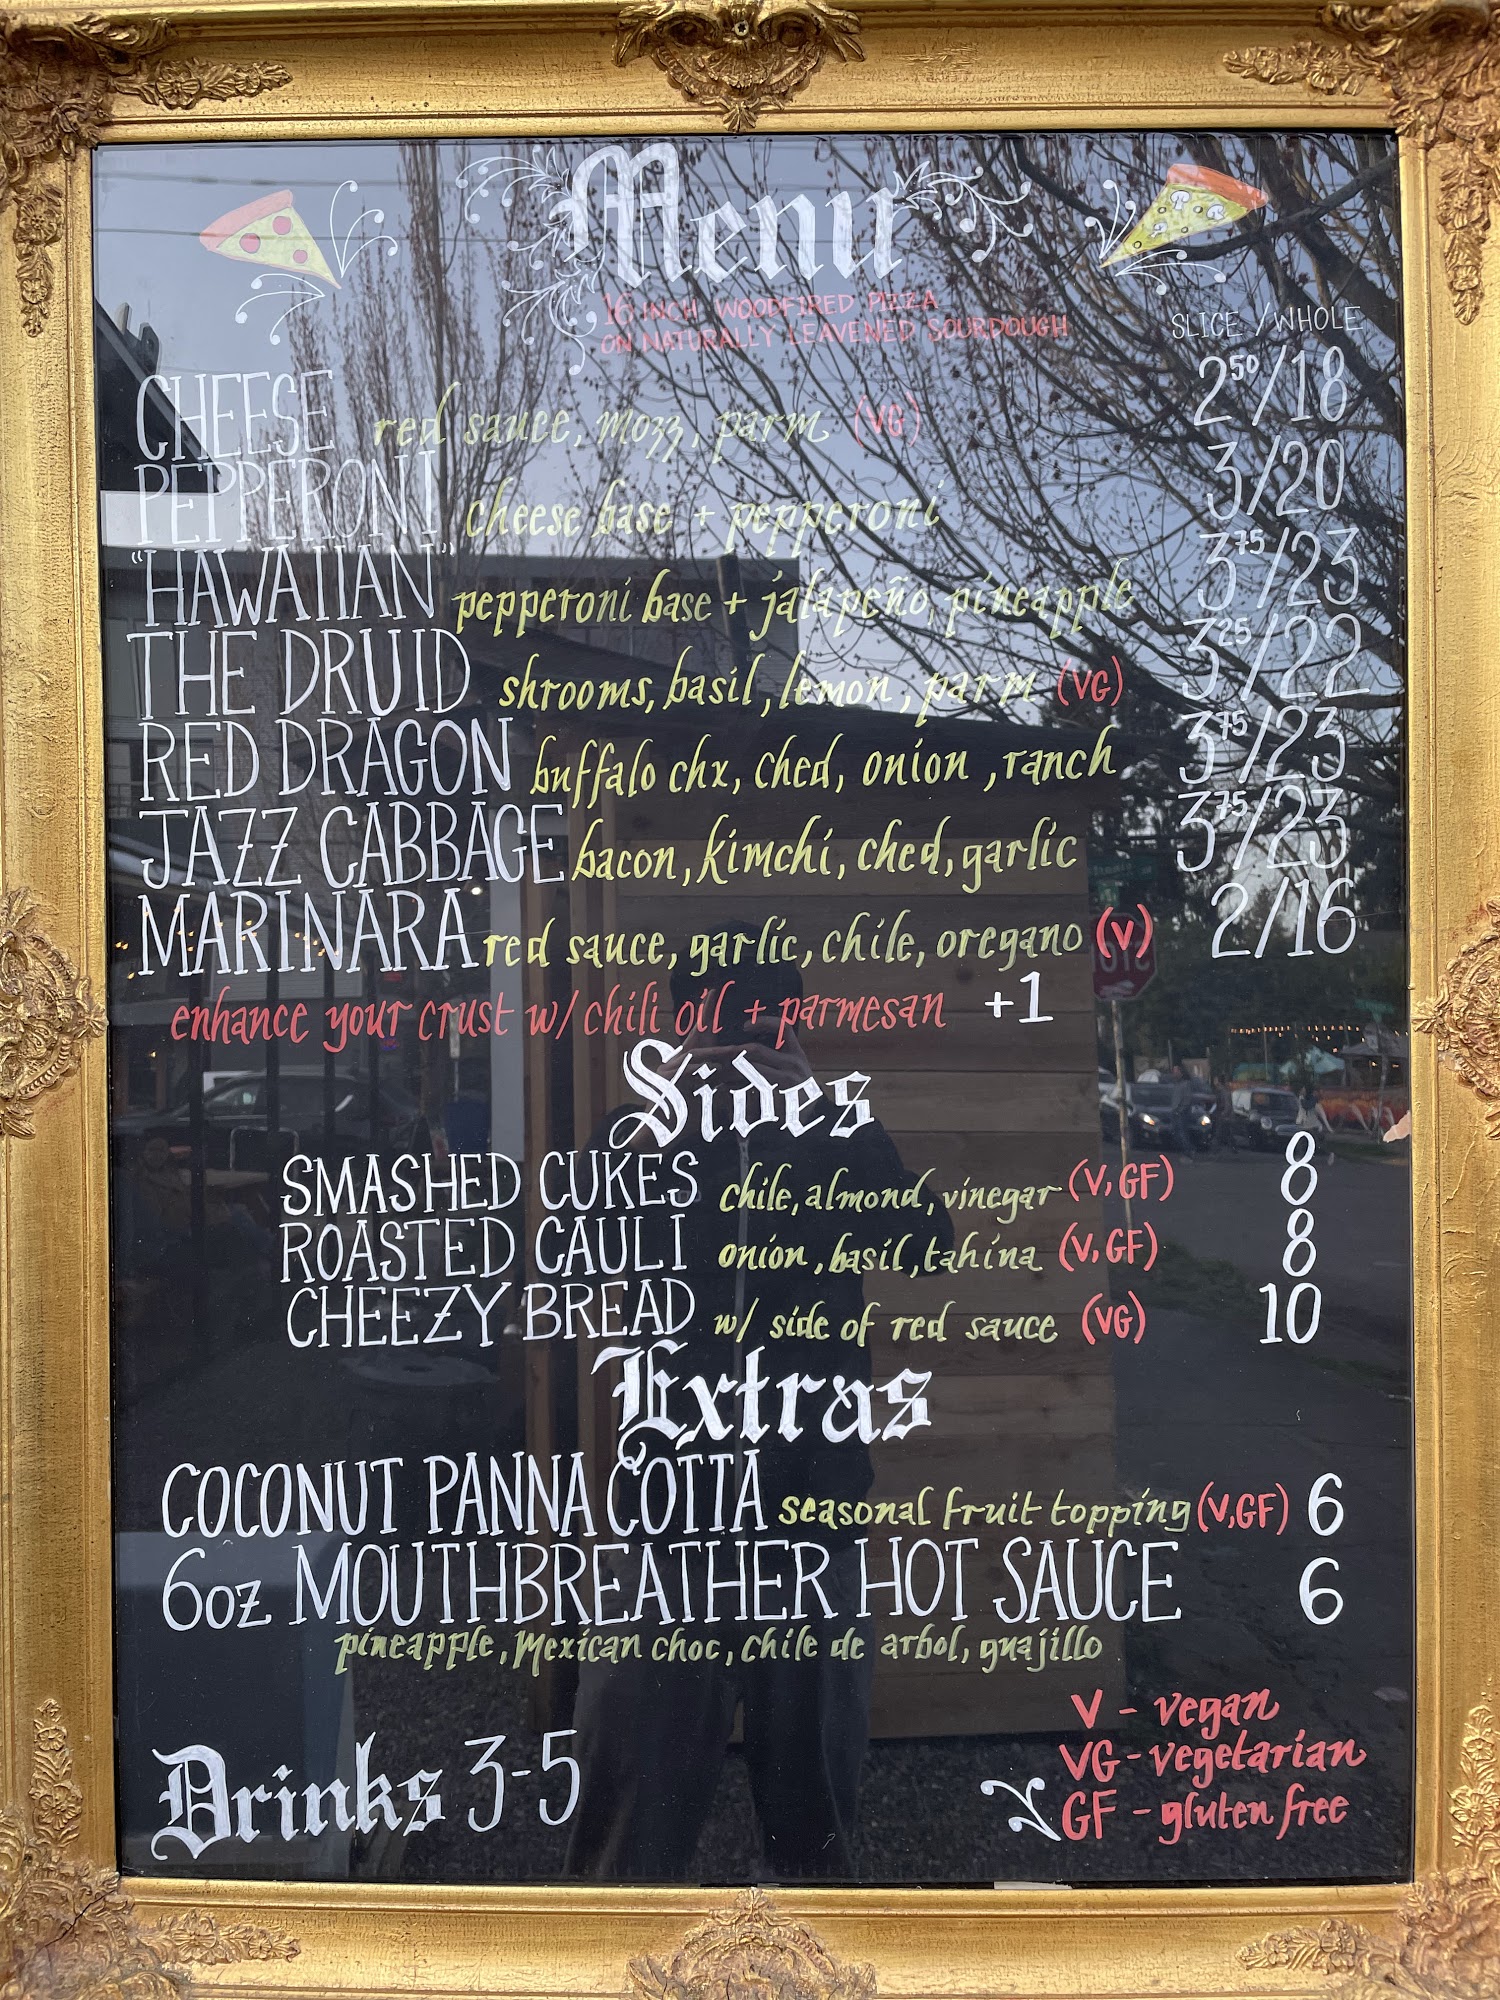 Menu
16 INCH WOODFIRED PIZZA
ON NATURALLY LEAVENED SOURDOUGH
SLICE / WHOLE
CHEESE red sauce, mozz, parm (VG) 2⁵⁰/18
PEPPERONI cheese base + pepperoni 3/20
"HAWAIIAN" pepperoni base + jalapeño, pineapple 3⁷⁵/23
THE DRUID shrooms, basil, lemon, parm (VG) 3²⁵/22
RED DRAGON buffalo chx, ched, onion, ranch 3⁷⁵/23
JAZZ CABBAGE bacon, kimchi, ched, garlic 3⁷⁵/23
MARINARA red sauce, garlic, chile, oregano (V) 2/16
enhance your crust w/ chili oil + parmesan +1
Sides
SMASHED CUKES chile, almond, vinegar (V, GF) 8
ROASTED CAULI onion, basil, tahina (V, GF) 8
CHEEZY BREAD w/ side of red sauce (VG) 10
Extras
COCONUT PANNA COTTA seasonal fruit topping (V, GF) 6
6oz MOUTHBREATHER HOT SAUCE 6
pineapple, Mexican choc, chile de arbol, guajillo
Drinks 3-5
V - vegan
VG - vegetarian
GF - gluten free